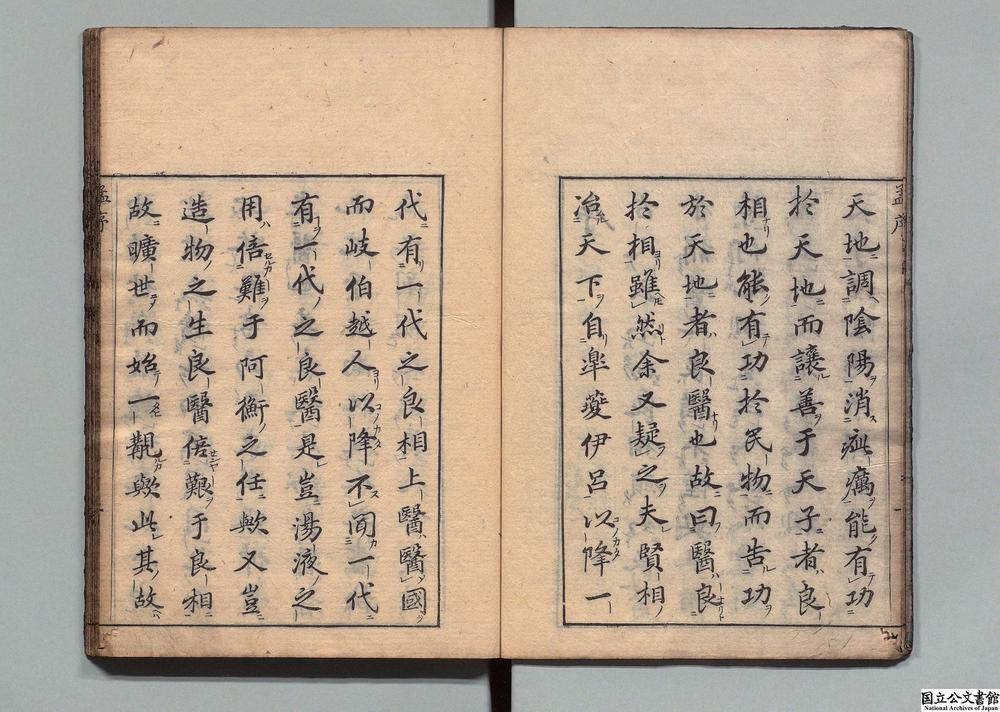 天地調陰陽消疵癘能有功
於天地而讓善于天子者良
相也能有功於民物而告功
於天地者良醫也故曰醫良
於相雖然余又疑之夫賢相
治天下自皐夔伊呂以降一
代有一代之良相上醫醫國
而岐伯越人以降不聞一代
有一代之良醫是豈湯液之
用倍難于阿衡之任歟又豈
造物之生良醫倍艱于良相
故曠世而始一覯歟此其故
孟序
国立公文書館
National Archives of Japan